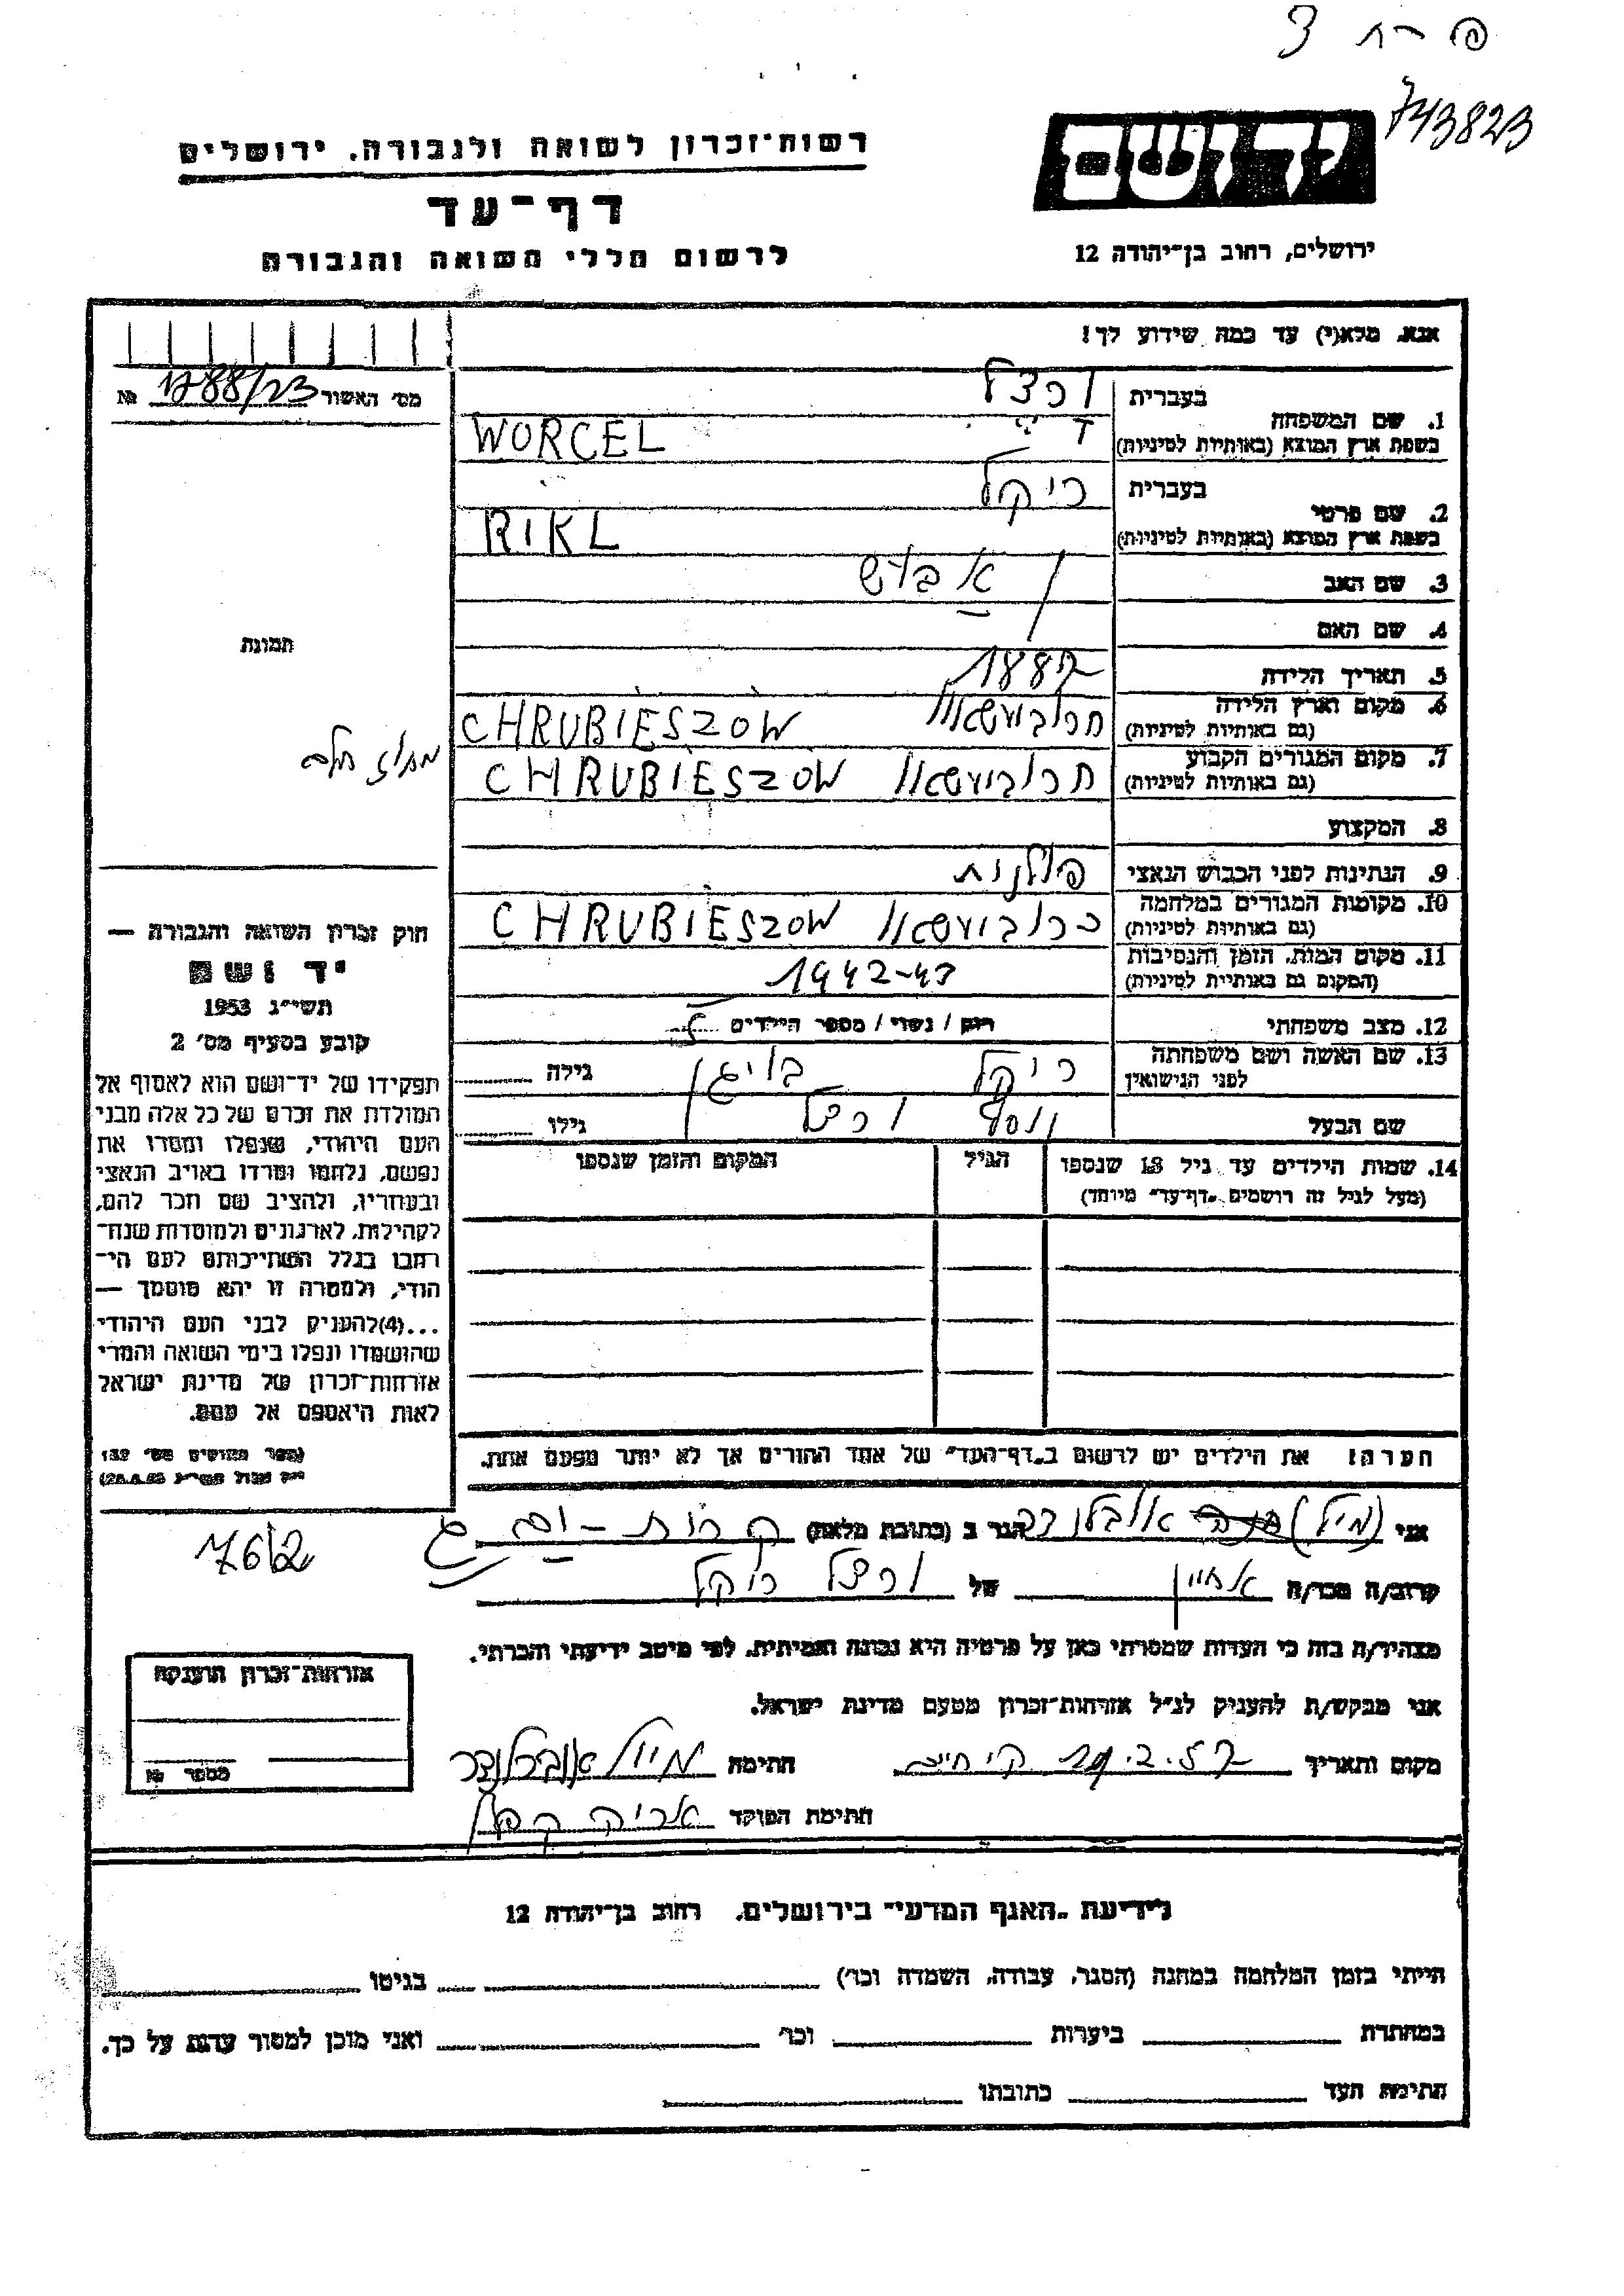 743823
יד ושם
רשות־זכרון לשואה ולגבורה, ירושלים
דף־עד
לרשום חללי השואה והגבורה
ירושלים, רחוב בן־יהודה 12
אנא, מלא(י) עד כמה שידוע לך!
מס׳ האשור № 1788/23
1. שם המשפחה
בעברית
ורצל
בשפת ארץ המוצא (באותיות לטיניות)
WORCEL
2. שם פרטי
בעברית
ריקל
בשפת ארץ המוצא (באותיות לטיניות)
RIKL
3. שם האב
4. שם האם
5. תאריך הלידה
1887
6. מקום וארץ הלידה
(גם באותיות לטיניות)
חרוביעשאוו CHRUBIESZOW
7. מקום המגורים הקבוע
(גם באותיות לטיניות)
חרוביעשאוו CHRUBIESZOW
8. המקצוע
9. הנתינות לפני הכבוש הנאצי
פולנית
10. מקומות המגורים במלחמה
(גם באותיות לטיניות)
חרוביעשאוו CHRUBIESZOW
11. מקום המות, הזמן והנסיבות
(המקום גם באותיות לטיניות)
1942-43
12. מצב משפחתי
רוק / נשוי / מספר הילדים 5
13. שם האשה ושם משפחתה
לפני הנישואין
ריקל
גילה
שם הבעל
ורצל
גילו
14. שמות הילדים עד גיל 18 שנספו
(מעל לגיל זה רושמים „דף־עד״ מיוחד)
הגיל
המקום והזמן שנספו
הערה: את הילדים יש לרשום ב„דף־העד״ של אחד ההורים אך לא יותר מפעם אחת.
תמונה
חוק זכרון השואה והגבורה —
יד ושם
תשי״ג 1953
קובע בסעיף מס׳ 2
תפקידו של יד־ושם הוא לאסוף אל
המולדת את זכרם של כל אלה מבני
העם היהודי, שנפלו ומסרו את
נפשם, נלחמו ומרדו באויב הנאצי
ובעוזריו, ולהציב שם וזכר להם,
לקהילות, לארגונים ולמוסדות שנח־
רבו בגלל השתייכותם לעם הי־
הודי, ולמטרה זו יהא מוסמך —
...(4)להעניק לבני העם היהודי
שהושמדו ונפלו בימי השואה והמרי
אזרחות־זכרון של מדינת ישראל
לאות היאספם אל עמם.
(ספר החוקים מס׳ 132
אני הגר ב (כתובת מלאה) קרית-ים
קרוב/ה מכר/ה אחיין של ורצל ריקל
מצהיר/ה בזה כי העדות שמסרתי כאן על פרטיה היא נכונה ואמיתית, לפי מיטב ידיעתי והכרתי.
אני מבקש/ת להעניק לנ״ל אזרחות־זכרון מטעם מדינת ישראל.
מקום ותאריך חתימה
חתימת הפוקד
אזרחות־זכרון הוענקה
מספר №
לידיעת „האגף המדעי״ בירושלים, רחוב בן־יהודה 12
הייתי בזמן המלחמה במחנה (הסגר, עבודה, השמדה וכו׳) בגיטו
במחתרת ביערות וכו׳ ואני מוכן למסור עדות על כך.
חתימת העד כתובתו